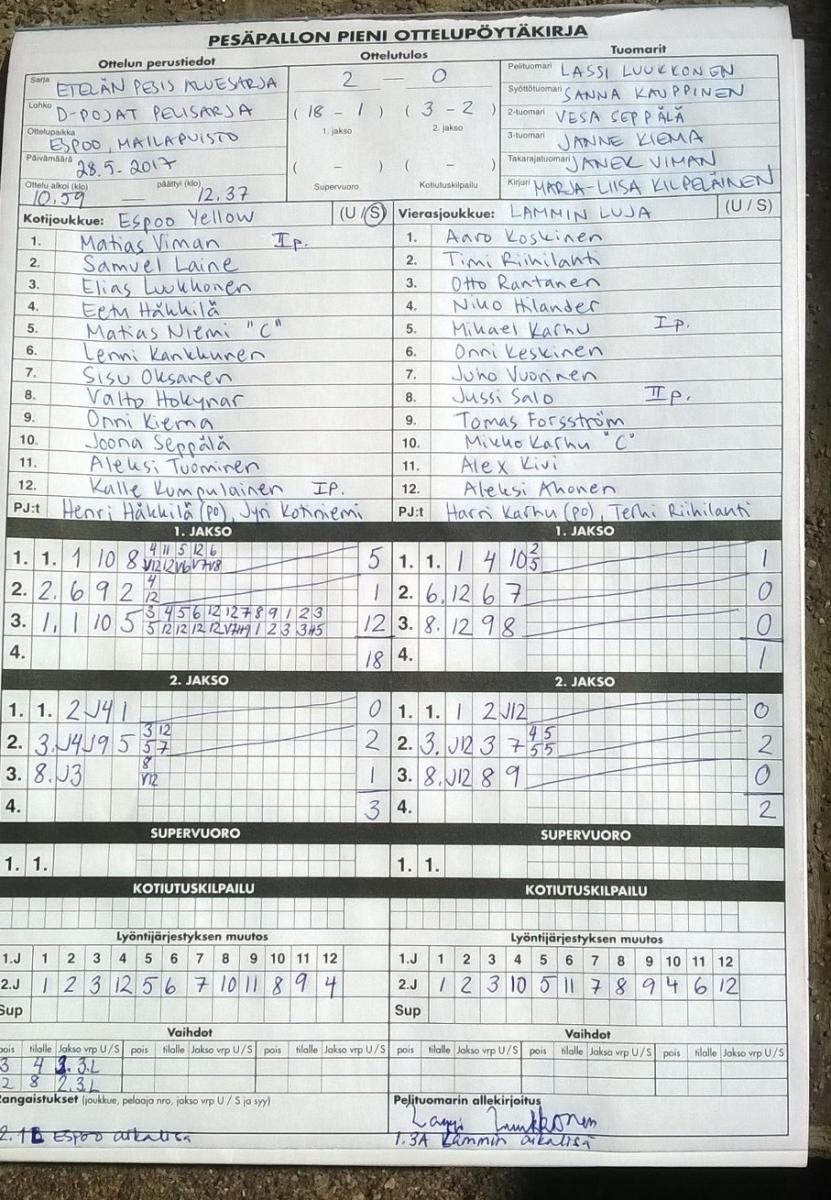 PESÄPALLON PIENI OTTELUPÖYTÄKIRJA
Ottelun perustiedot Ottelutulos Tuomarit
Sarja ETELÄN PESIS ALUESARJA 2 — 0 Pelituomari LASSI LUUKKONEN
Lohko D-POJAT PELISARJA (18 - 1) (3 - 2) Syöttötuomari SANNA KAUPPINEN
1. jakso 2. jakso 2-tuomari VESA SEPPÄLÄ
Ottelupaikka ESPOO, MAILAPUISTO 3-tuomari JANNE KIEMA
Päivämäärä 28.5.2017 ( - ) ( - ) Takarajatuomari JANEK VIMAN
Ottelu alkoi (klo) 10.59 — päättyi (klo) 12.37 Supervuoro Kotiutuskilpailu Kirjuri MARJA-LIISA KILPELÄINEN
Kotijoukkue: Espoo Yellow (U / S) Vierasjoukkue: LAMMIN LUJA (U / S)
1. Matias Viman II p. 1. Aaro Koskinen
2. Samuel Laine 2. Timi Riihilahti
3. Elias Luukkonen 3. Otto Rantanen
4. Eetu Häkkilä 4. Niko Hilander
5. Matias Niemi "C" 5. Mikael Karhu I p.
6. Lenni Kankkunen 6. Onni Keskinen
7. Sisu Oksanen 7. Juho Vuorinen
8. Valto Hokynar 8. Jussi Salo II p.
9. Onni Kiema 9. Tomas Forsström
10. Joona Seppälä 10. Mikko Karhu "C"
11. Aleksi Tuominen 11. Alex Kivi
12. Kalle Kumpulainen I P. 12. Aleksi Ahonen
PJ:t Henri Häkkilä (PO), Jyri Kotiniemi PJ:t Harri Karhu (PO), Terhi Riihilahti
1. JAKSO 1. JAKSO
4 11 5 12 6 2
1. 1. 1 10 8 V12 12 V6 V7 V8 5 1. 1. 1 4 10 5 1
4
2. 2. 6 9 2 12 1 2. 6. 12 6 7 0
3 4 5 6 12 12 7 8 9 1 2 3
3. 1. 1 10 5 5 12 12 12 12 1 2 3 12 3. 8. 12 9 8 0
4. 18 4. 1
2. JAKSO 2. JAKSO
1. 1. 2 V4 1 0 1. 1. 1 2 V12 0
3 12 4 5
2. 3. V4 V9 5 5 7 2 2. 3. V12 3 7 5 5 2
8
3. 8. V3 V12 1 3. 8. V12 8 9 0
4. 3 4. 2
SUPERVUORO SUPERVUORO
1. 1. 1. 1.
KOTIUTUSKILPAILU KOTIUTUSKILPAILU
Lyöntijärjestyksen muutos Lyöntijärjestyksen muutos
1.J 1 2 3 4 5 6 7 8 9 10 11 12 1.J 1 2 3 4 5 6 7 8 9 10 11 12
2.J 1 2 3 12 5 6 7 10 11 8 9 4 2.J 1 2 3 10 5 11 7 8 9 4 6 12
Sup Sup
Vaihdot Vaihdot
pois tilalle Jakso vrp U/S pois tilalle Jakso vrp U/S pois tilalle Jakso vrp U/S pois tilalle Jakso vrp U/S pois tilalle Jakso vrp U/S pois tilalle Jakso vrp U/S
3 4 3.L
2 8 2.3L
Rangaistukset (joukkue, pelaaja nro, jakso vrp U / S ja syy) Pelituomarin allekirjoitus
Lassi Luukkonen
Espoo aikalisä 1.3A Lammin aikalisä